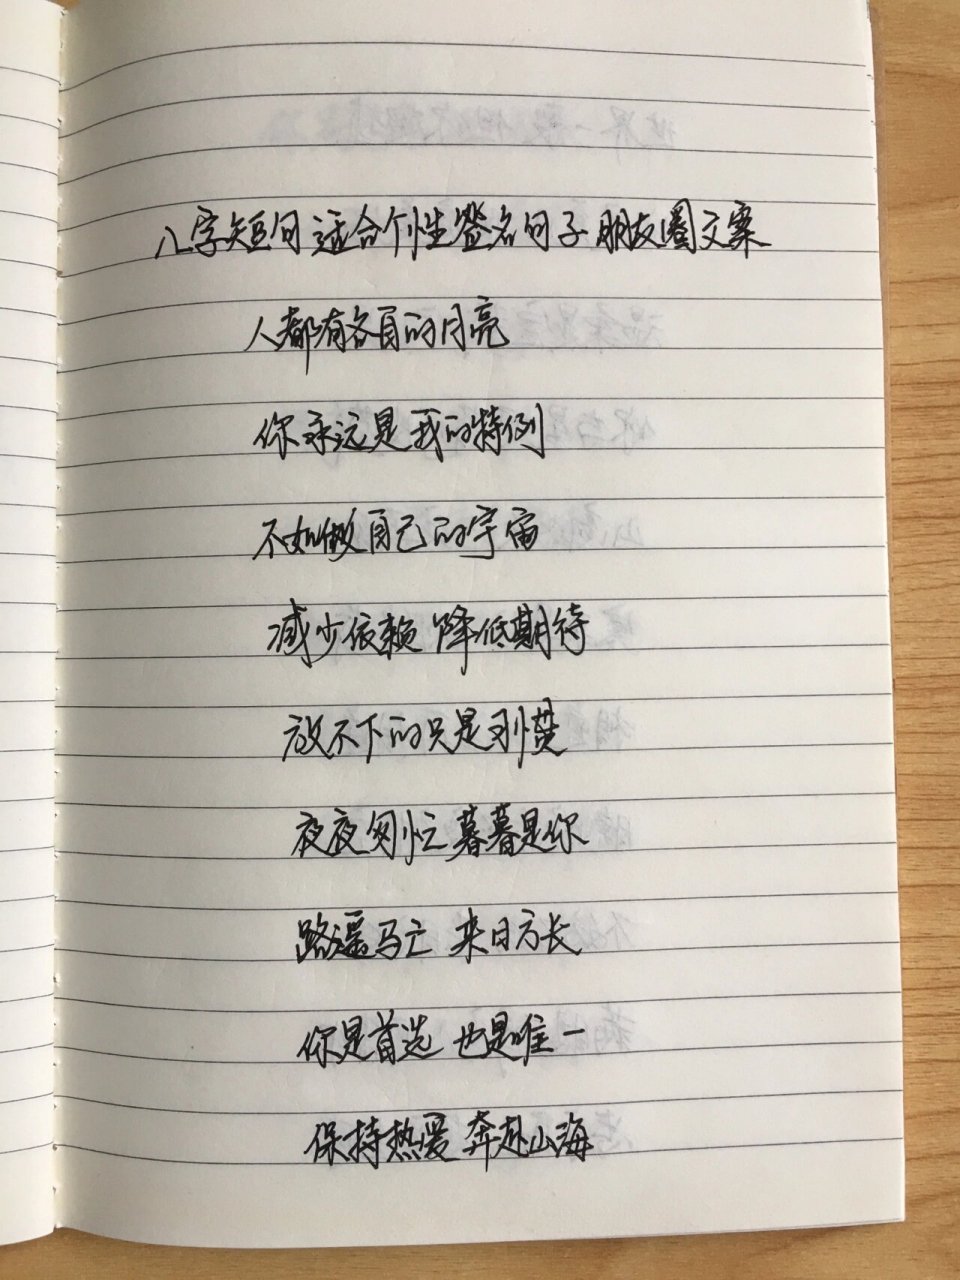 八字短句 适合个性签名句子 朋友圈文案
人都有各自的月亮
你永远是我的特例
不如做自己的宇宙
减少依赖 降低期待
放不下的只是刚楚
夜夜匆忙 暮暮是你
路遥马亡 来日方长
你是首选 也是唯一
保持热爱 奔赴山海